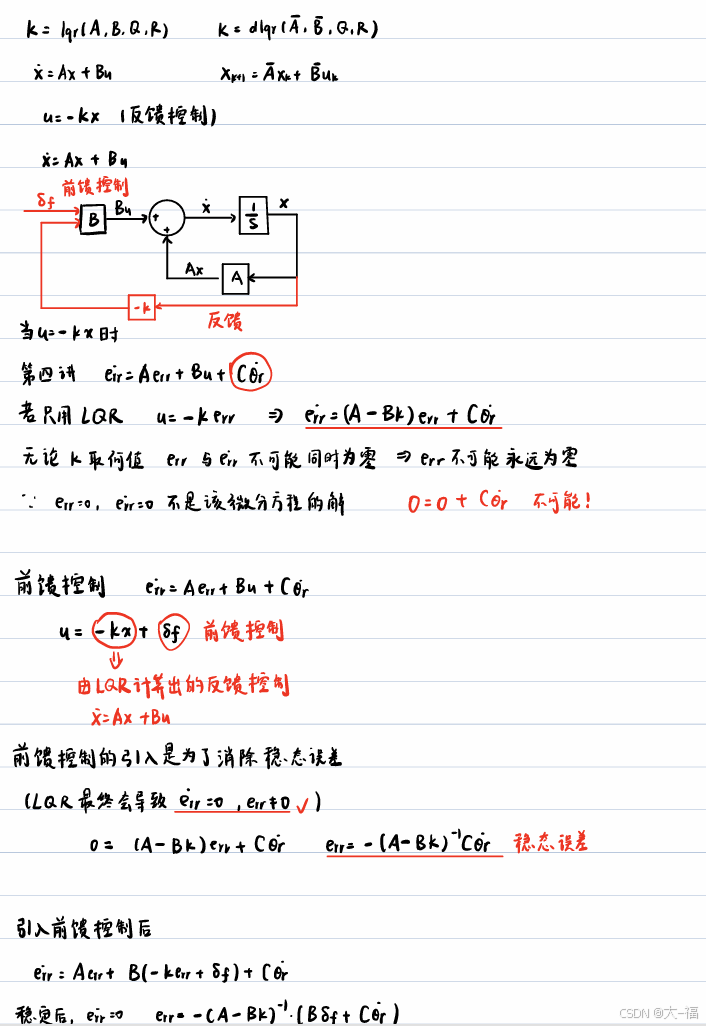 k = lqr(A, B, Q, R)    k = dlqr(Ā, B̄, Q, R)
ẋ = Ax + Bu    xₖ₊₁ = Āxₖ + B̄uₖ
u = -kx (反馈控制)
ẋ = Ax + Bu
前馈控制
δf B Bu + + ẋ 1/S x
Ax A
-k
反馈
当 u = -kx 时
第四讲 ėrr = Aerr + Bu + Cθ̇r
若只用 LQR u = -kerr ⇒ ėrr = (A - Bk)err + Cθ̇r
无论 k 取何值 err 与 ėrr 不可能同时为零 ⇒ err 不可能永远为零
∵ err = 0, ėrr = 0 不是该微分方程的解 0 = 0 + Cθ̇r 不可能!
前馈控制 ėrr = Aerr + Bu + Cθ̇r
u = -kx + δf 前馈控制
⇓
由LQR计算出的反馈控制
ẋ = Ax + Bu
前馈控制的引入是为了消除稳态误差
(LQR 最终会导致 ėrr = 0, err ≠ 0 ✓)
0 = (A - Bk)err + Cθ̇r    err = -(A - Bk)⁻¹Cθ̇r 稳态误差
引入前馈控制后
ėrr = Aerr + B(-kerr + δf) + Cθ̇r
稳定后, ėrr = 0 err = -(A - Bk)⁻¹·(Bδf + Cθ̇r)
CSDN @大-福